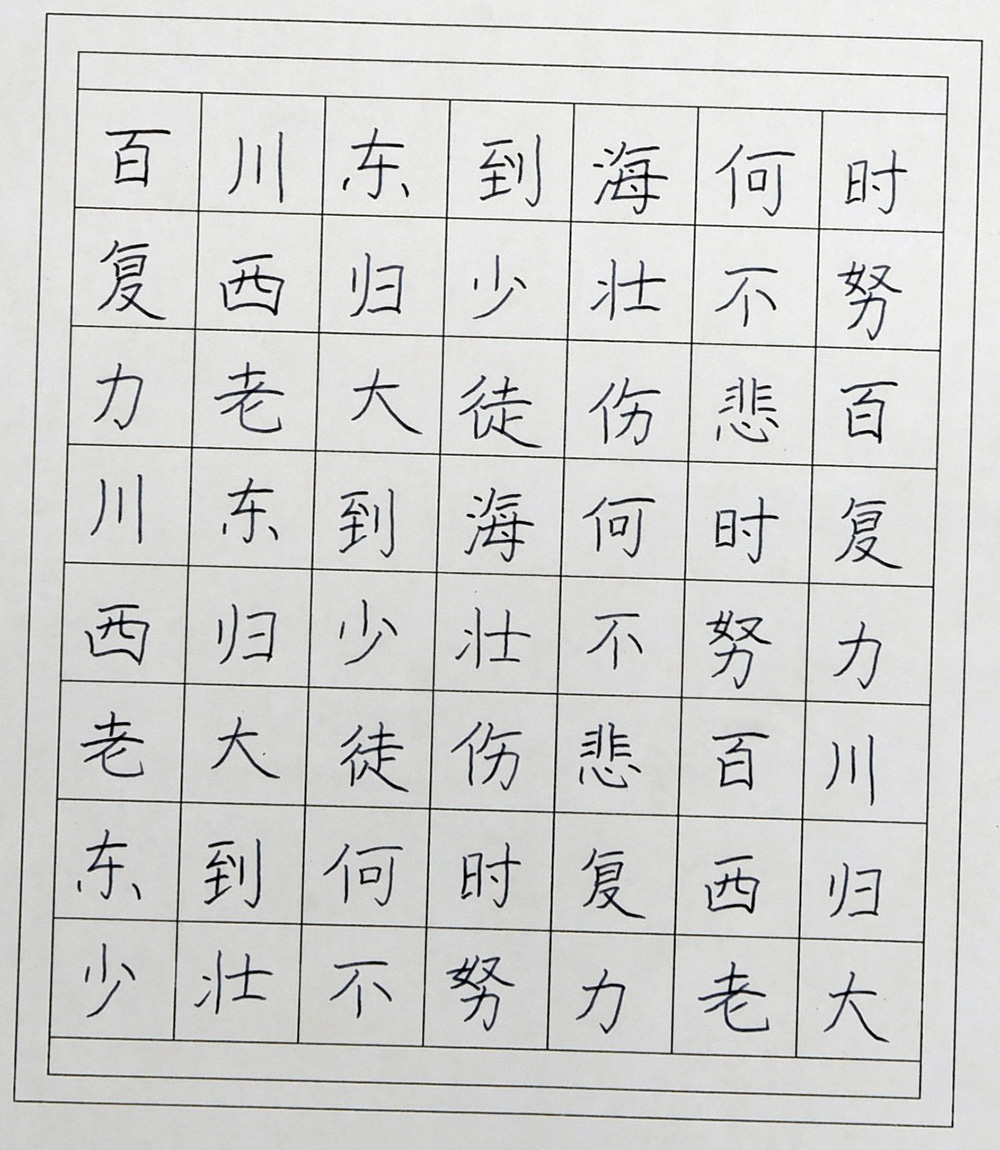 百川东到海何时
复西归少壮不努
力老大徒伤悲百
川东到海何时复
西归少壮不努力
老大徒伤悲百川
东到何时复西归
少壮不努力老大